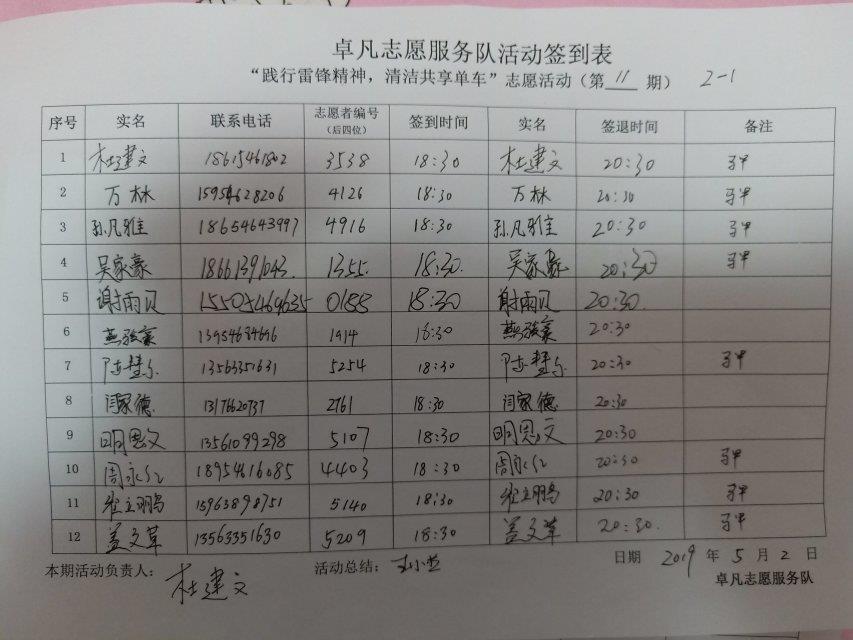 卓凡志愿服务队活动签到表
“践行雷锋精神，清洁共享单车”志愿活动（第 11 期） 2-1
序号 实名 联系电话 志愿者编号（后四位） 签到时间 实名 签退时间 备注
1 杜建文 18615461802 3538 18:30 杜建文 20:30 马甲
2 万林 15954628206 4126 18:30 万林 20:30 马甲
3 孙凡雅 18654643997 4916 18:30 孙凡雅 20:30 马甲
4 吴家豪 18661391043 1355 18:30 吴家豪 20:30 马甲
5 谢雨贝 15505469635 0188 18:30 谢雨贝 20:30
6 1914 20:30
7 13563351631 5254 18:30 20:30 马甲
8 闫家德 13176620737 2761 18:30 闫家德 20:30
9 明恩文 13561099298 5107 18:30 明恩文 20:30
10 周永仁 18954616085 4403 18:30 周永仁 20:30 马甲
11 崔立鹏 15963898751 5140 18:30 崔立鹏 20:30 马甲
12 盖文革 13563351630 5209 18:30 盖文革 20:30 马甲
本期活动负责人： 杜建文 活动总结： 日期 2019 年 5 月 2 日
卓凡志愿服务队